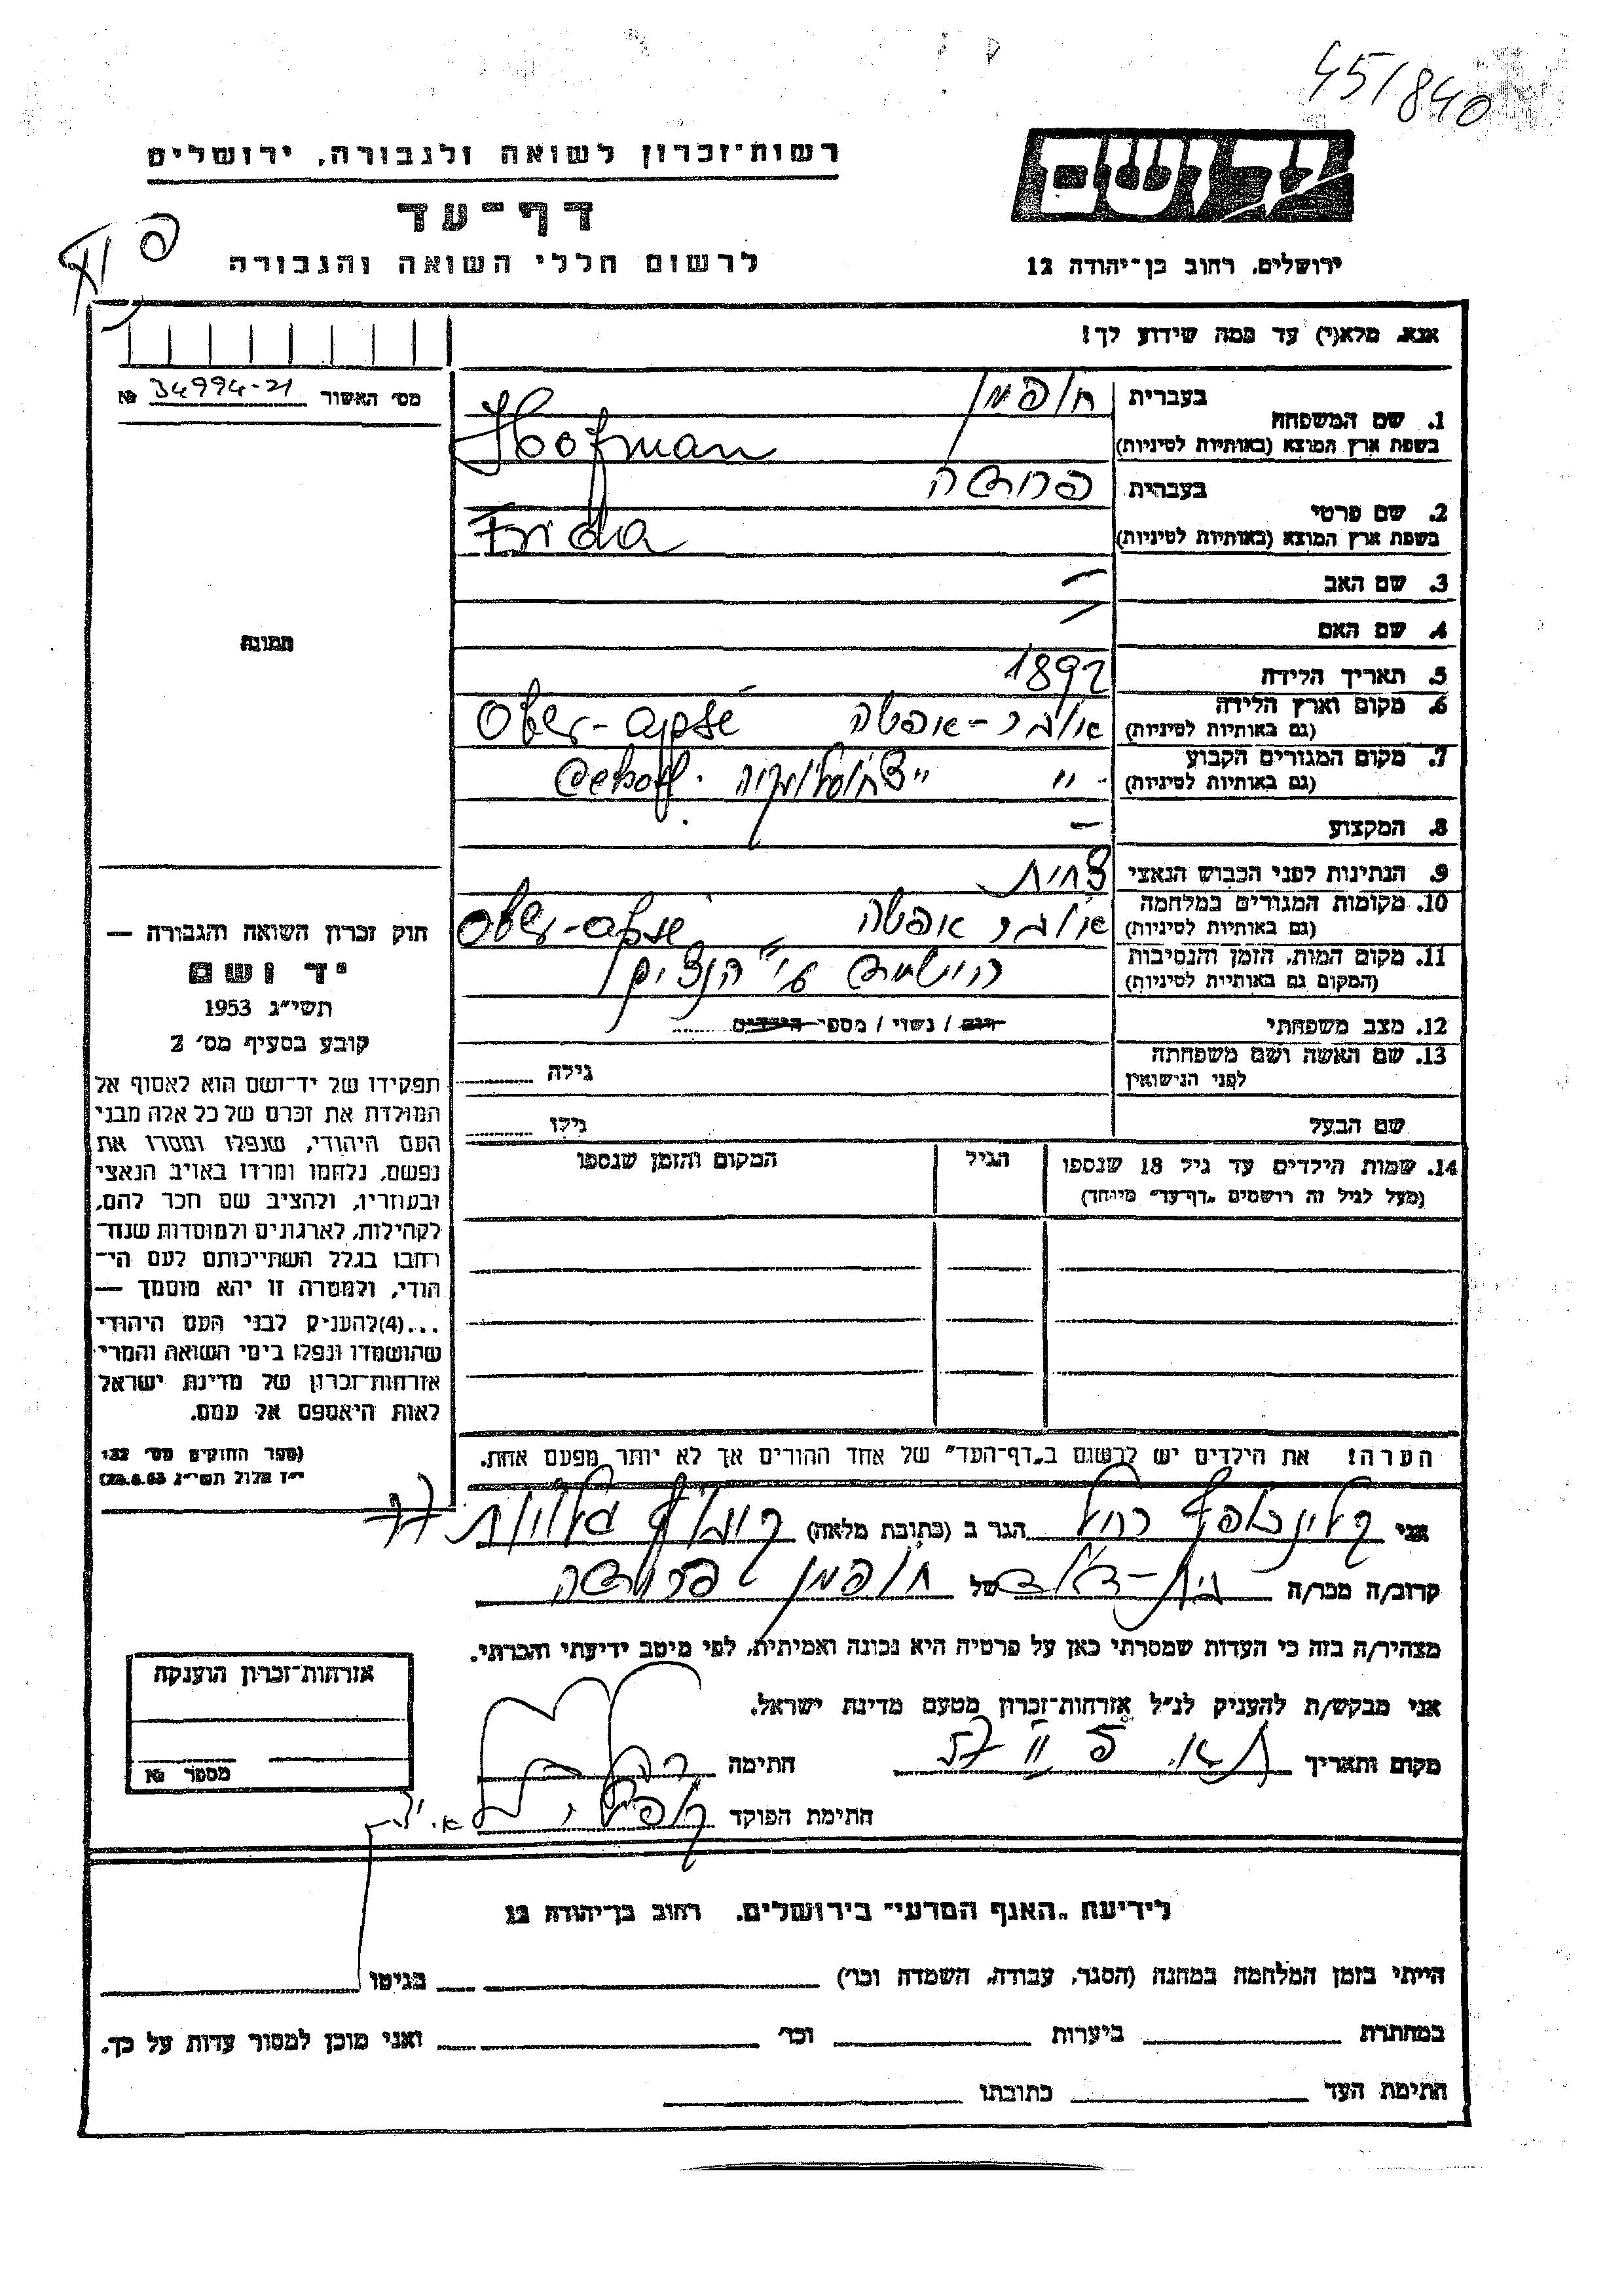 45/840
רשות־זכרון לשואה ולגבורה, ירושלים
יד ושם
דף־עד
לרשום חללי השואה והגבורה
ירושלים, רחוב בן־יהודה 12
אנא, מלא(י) עד כמה שידוע לך!
מס׳ האשור 34994-21 №
1. שם המשפחה
בעברית הופמן
בשפת ארץ המוצא (באותיות לטיניות) Hofman
2. שם פרטי
בעברית פרידה
בשפת ארץ המוצא (באותיות לטיניות) Frida
3. שם האב —
4. שם האם —
תמונה
5. תאריך הלידה 1892
6. מקום וארץ הלידה
(גם באותיות לטיניות)
7. מקום המגורים הקבוע
(גם באותיות לטיניות)
8. המקצוע —
9. הנתינות לפני הכבוש הנאצי צ׳כית
10. מקומות המגורים במלחמה
(גם באותיות לטיניות)
11. מקום המות, הזמן והנסיבות
(המקום גם באותיות לטיניות)
הושמדה ע״י הנצים
12. מצב משפחתי רווק / נשוי / מספר הילדים
13. שם האשה ושם משפחתה
לפני הנישואין
גילה
שם הבעל
גילו
14. שמות הילדים עד גיל 18 שנספו
(מעל לגיל זה רושמים „דף־עד״ מיוחד)
הגיל
המקום והזמן שנספו
חוק זכרון השואה והגבורה —
יד ושם
תשי״ג 1953
קובע בסעיף מס׳ 2
תפקידו של יד־ושם הוא לאסוף אל
המולדת את זכרם של כל אלה מבני
העם היהודי, שנפלו ומסרו את
נפשם, נלחמו ומרדו באויב הנאצי
ובעוזריו, ולהציב שם וזכר להם,
לקהילות, לארגונים ולמוסדות שנח־
רבו בגלל השתייכותם לעם הי־
הודי, ולמטרה זו יהא מוסמך —
...(4)להעניק לבני העם היהודי
שהושמדו ונפלו בימי השואה והמרי
אזרחות־זכרון של מדינת ישראל
לאות היאספם אל עמם.
(ספר החוקים מס׳ 132
י״ז אלול תשי״ג 28.8.53)
הערה! את הילדים יש לרשום ב„דף־העד״ של אחד ההורים אך לא יותר מפעם אחת.
אני רחל הגר ב (כתובת מלאה) גלויות 77
קרוב/ה מכר/ה בת-דוד של הופמן פרידה
מצהיר/ה בזה כי העדות שמסרתי כאן על פרטיה היא נכונה ואמיתית, לפי מיטב ידיעתי והכרתי.
אני מבקש/ת להעניק לנ״ל אזרחות־זכרון מטעם מדינת ישראל.
מקום ותאריך
חתימה
חתימת הפוקד
אזרחות־זכרון הוענקה
מספר №
לידיעת „האגף המדעי״ בירושלים, רחוב בן־יהודה 12
הייתי בזמן המלחמה במחנה (הסגר, עבודה, השמדה וכו׳) בגיטו
במחתרת ביערות וכו׳ ואני מוכן למסור עדות על כך.
חתימת העד כתובתו